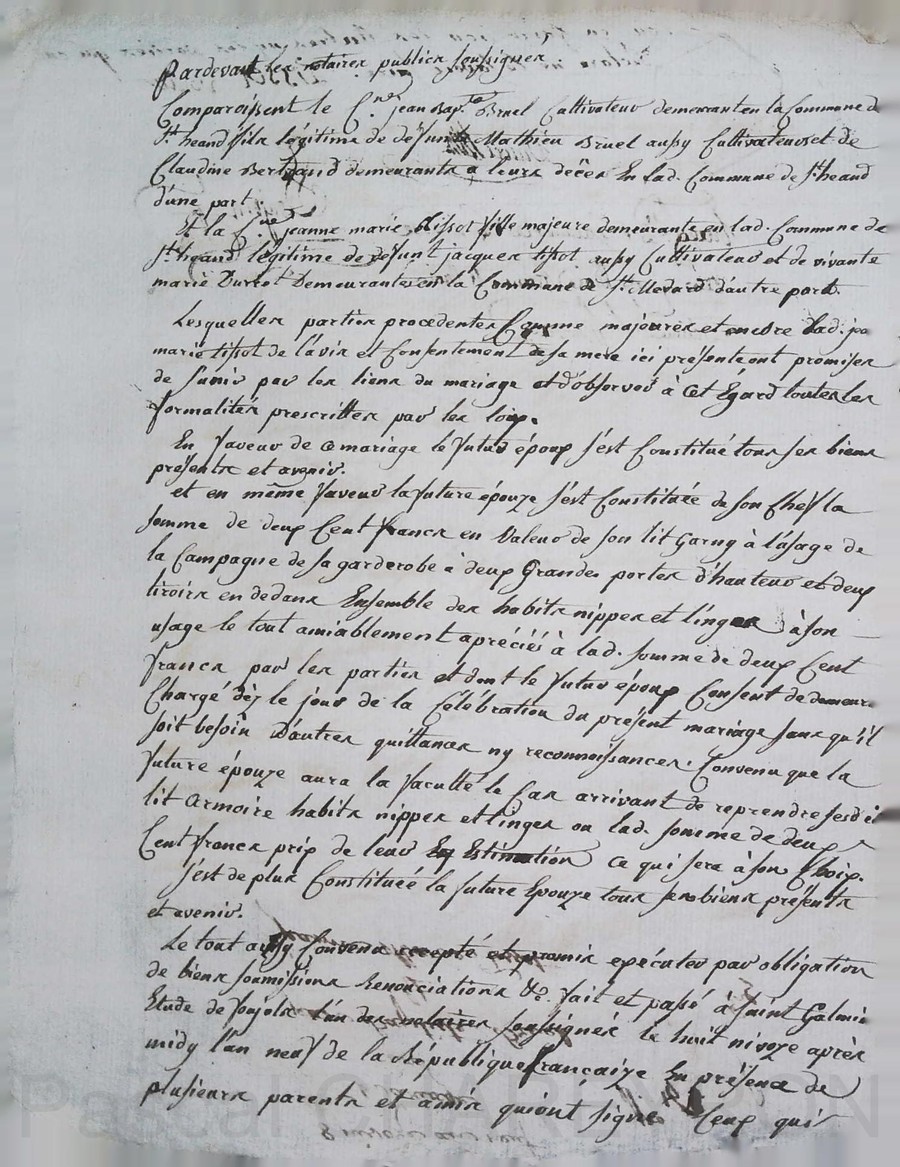 Pardevant les notaires publics soussignés
Comparoissent le C.en jean Bap.te Bruel Cultivateur demeurant en la Commune de
St. heand fils légitime de défunts Mathieu Bruel aussy Cultivateur et de
Claudine Bertrand demeurants a leurs décès En lad. Commune de St. heand
d'une part
Et la C.ne jeanne marie tissot fille majeure demeurante en lad. Commune de
St. heand légitime de défunt jacques tissot aussy Cultivateur et de vivante
marie Demeurante en la Commune de St. Medard d'autre part.
Lesquelles parties procedentes Comme majeures et encore lad. je
marie tissot de l'avis et Consentement de sa mere ici présente ont promises
de s'unir par les liens du mariage et d'observer à cet Égard toutes les
formalités prescrittes par les loix.
En faveur de ce mariage le futur époux s'est Constitué tous ses biens
présents et avenir.
et en même faveur la future épouze s'est Constituée de son Chef la
somme de deux Cent francs en Valeur de son lit Garny à l'usage de
la Campagne de sa garderobe à deux Grandes portes d'hauteur et deux
tiroirs en dedans Ensemble des habits nippes et linges à son
usage le tout amiablement apréciés à lad. somme de deux Cent
francs par les parties et dont le futur époux Consent de demeurer
Chargé dès le jour de la Célébration du présent mariage sans qu'il
soit besoin d'autres quittances ny reconnoissances. Convenu que la
future épouze aura la faculté le Cas arrivant de reprendre sesd.
lit armoire habits nippes et linges ou lad. somme de deux
Cent francs prix de leur Estimation ce qui sera à son Choix.
S'est de plus Constituée la future Epouze tous ses biens présents
et avenir.
Le tout aussy Convenu accepté et promis exécuter par obligation
de biens soumissions Renonciations &c. fait et passé à saint Galmier
Etude de l'un des notaires soussignés le huit nivoze après
midy l'an neuf de la République française En présence de
plusieurs parents et amis qui ont signé Ceux qui
Pascal ROMSON